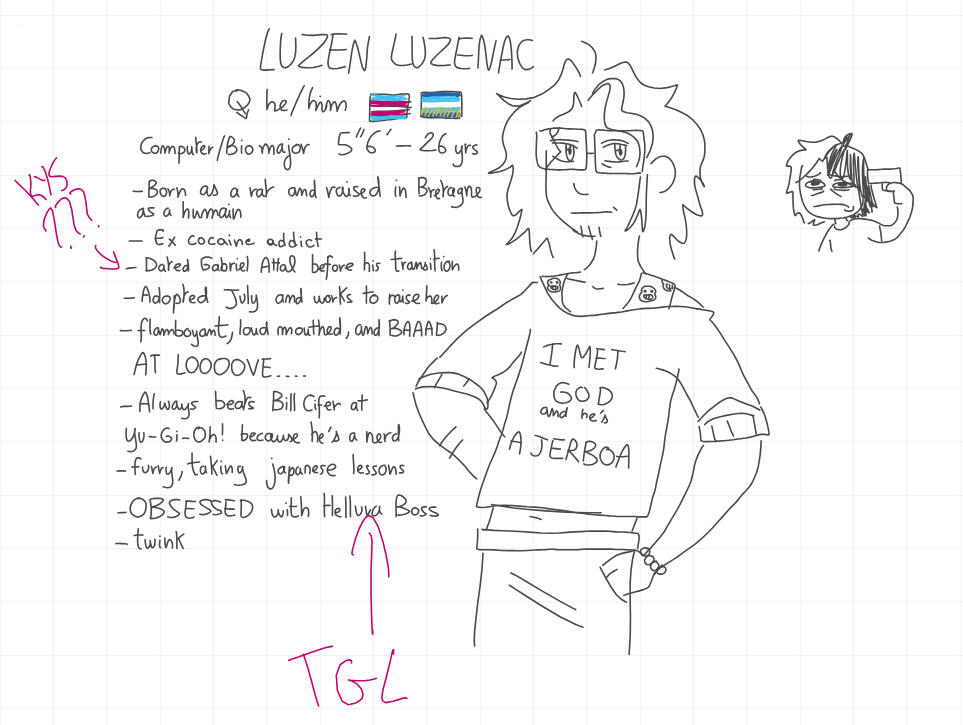 LUZEN LUZENAC
he/him
Computer/Bio major 5"6' - 26 yrs
- Born as a rat and raised in Bretagne
as a humain
- Ex cocaine addict
- Dated Gabriel Attal before his transition
- Adopted July and works to raise her
- flamboyant, loud mouthed, and BAAAD
AT LOOOOVE....
- Always beats Bill Cifer at
Yu-Gi-Oh! because he's a nerd
- furry, taking japanese lessons
- OBSESSED with Helluva Boss
- twink
KYS
???
TGL
I MET
GOD
and he's
A JERBOA